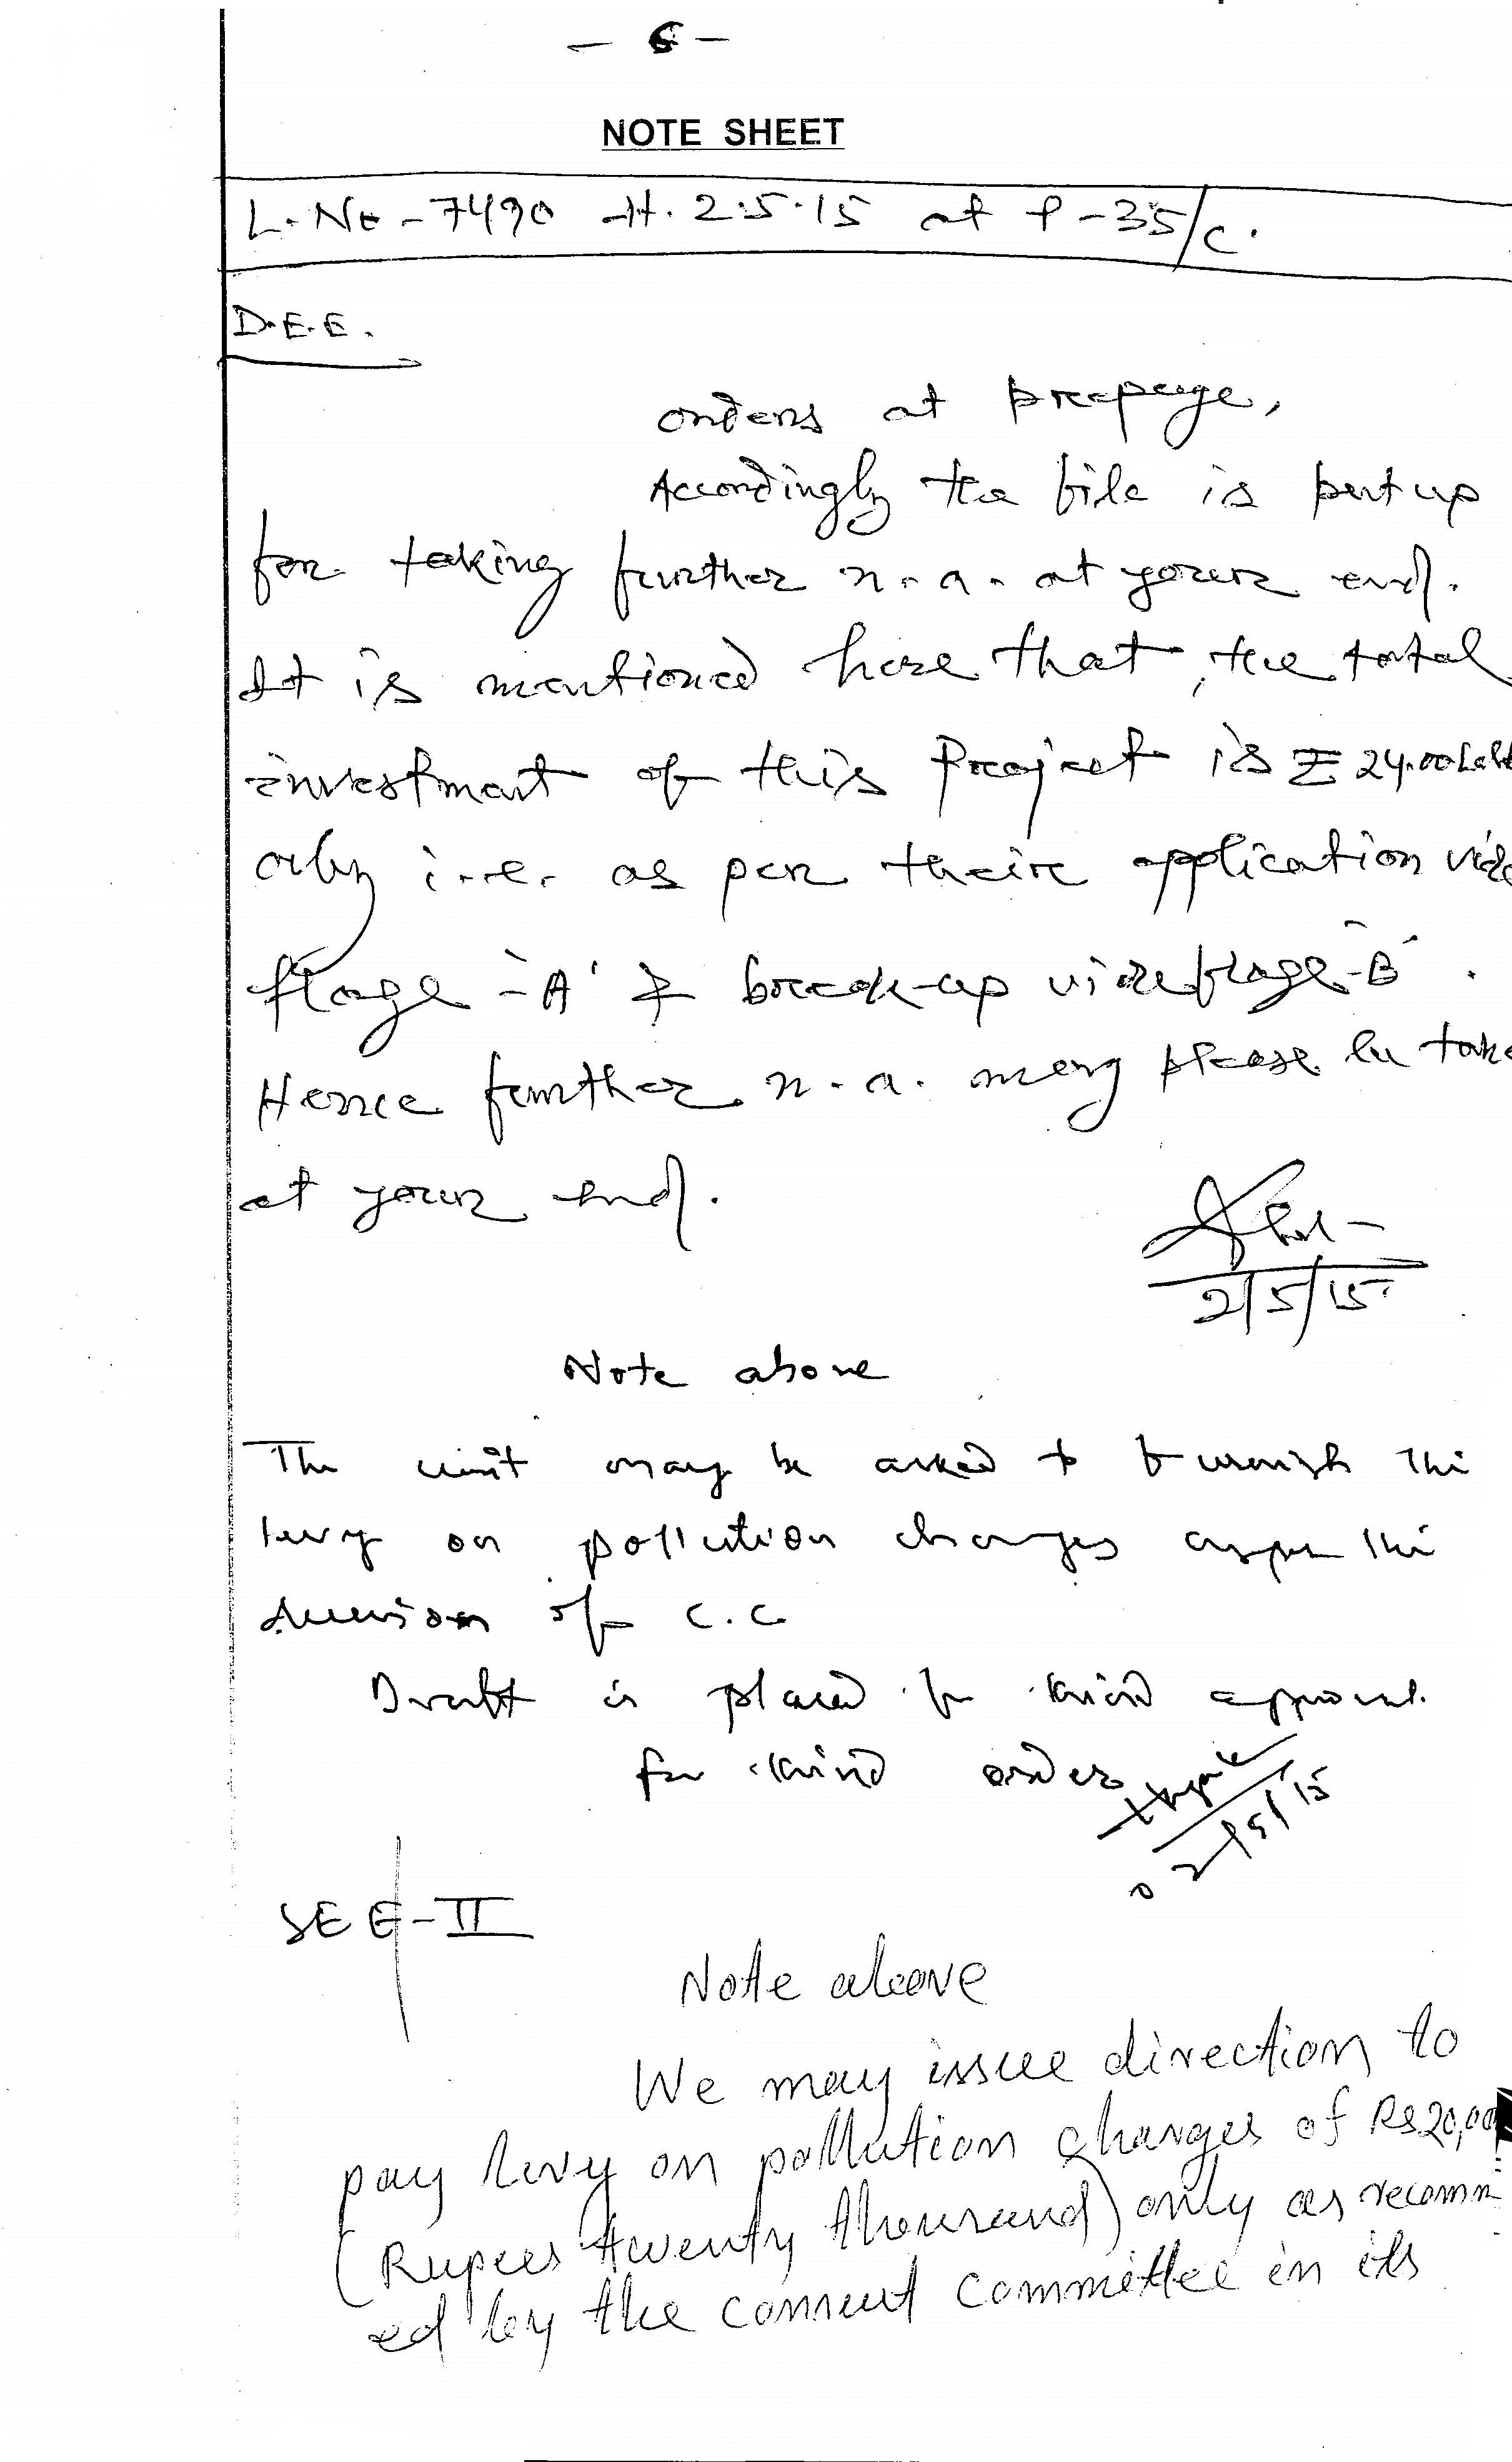 - 6 -
NOTE SHEET
L. No - 7490 dt. 2.5.15 at P-35/C.
D.E.E.
orders at prepage,
Accordingly the file is put up
for taking further n.a. at your end.
It is mentioned here that, the total
investment of this Project is ₹ 24.00 Lakh
only i.e. as per their application vide
flage-'A' & break-up vide flage-'B'.
Hence further n.a. may please be take
at your end.
2/5/15
Note above
The unit may be asked to furnish the
levy on pollution charges as per the
decision of C.C
Draft is placed for kind approval.
for kind orders
2/5/15
SEE-II
Note above
We may issue direction to
pay levy on pollution charges of Rs 20,00
(Rupees twenty thousand) only as recomm
ed by the consent committee in its